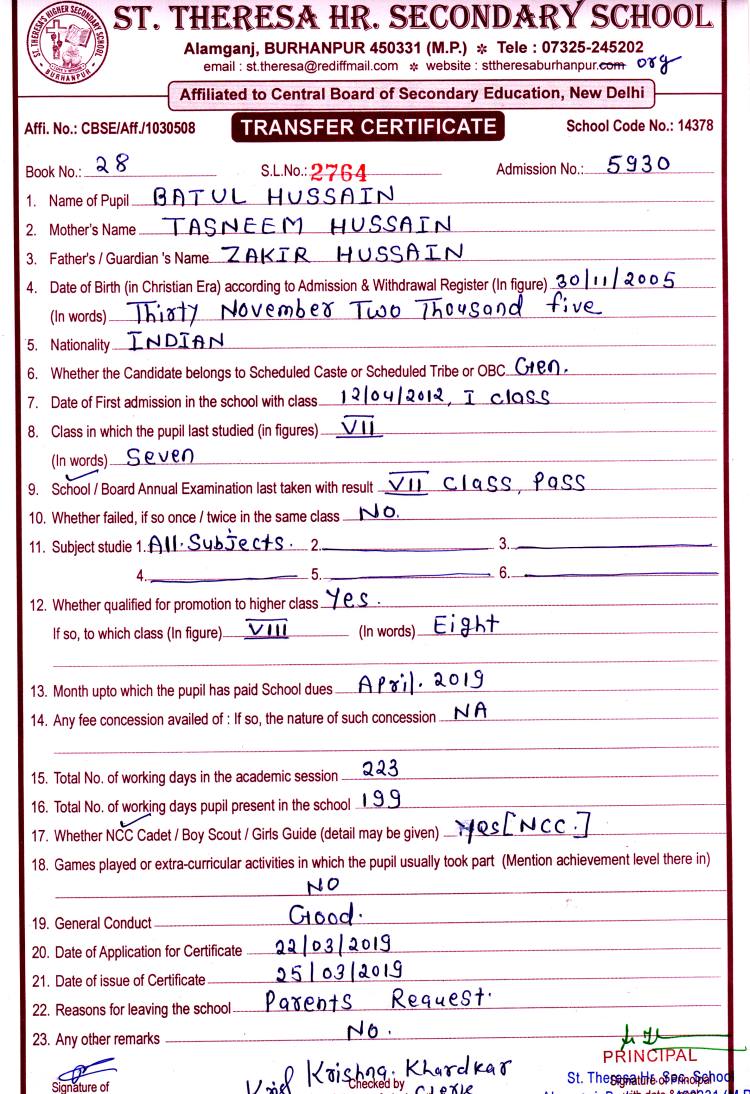 ST. THERESA HR. SECONDARY SCHOOL
ST. THERESA'S HIGHER SECONDARY SCHOOL
BURHANPUR
Alamganj, BURHANPUR 450331 (M.P.) ✻ Tele : 07325-245202
email : st.theresa@rediffmail.com ✻ website : sttheresaburhanpur.com org
Affiliated to Central Board of Secondary Education, New Delhi
Affi. No.: CBSE/Aff./1030508 TRANSFER CERTIFICATE School Code No.: 14378
Book No.: 28 S.L.No.: 2764 Admission No.: 5930
1. Name of Pupil BATUL HUSSAIN
2. Mother's Name TASNEEM HUSSAIN
3. Father's / Guardian 's Name ZAKIR HUSSAIN
4. Date of Birth (in Christian Era) according to Admission & Withdrawal Register (In figure) 30/11/2005
(In words) Thirty November Two Thousand five
5. Nationality INDIAN
6. Whether the Candidate belongs to Scheduled Caste or Scheduled Tribe or OBC Gen.
7. Date of First admission in the school with class 12/04/2012, I class
8. Class in which the pupil last studied (in figures) VII
(In words) Seven
9. School / Board Annual Examination last taken with result VII Class, Pass
10. Whether failed, if so once / twice in the same class No.
11. Subject studie 1. All Subjects. 2. 3.
4. 5. 6.
12. Whether qualified for promotion to higher class Yes.
If so, to which class (In figure) VIII (In words) Eight
13. Month upto which the pupil has paid School dues April. 2019
14. Any fee concession availed of : If so, the nature of such concession NA
15. Total No. of working days in the academic session 223
16. Total No. of working days pupil present in the school 199
17. Whether NCC Cadet / Boy Scout / Girls Guide (detail may be given) Yes [NCC.]
18. Games played or extra-curricular activities in which the pupil usually took part (Mention achievement level there in)
NO
19. General Conduct Good.
20. Date of Application for Certificate 22/03/2019
21. Date of issue of Certificate 25/03/2019
22. Reasons for leaving the school Parents Request.
23. Any other remarks No.
PRINCIPAL
Krishna Khardkar
Signature of Checked by Signature of Principal
St. Theresa Hr. Sec. School
Clerk